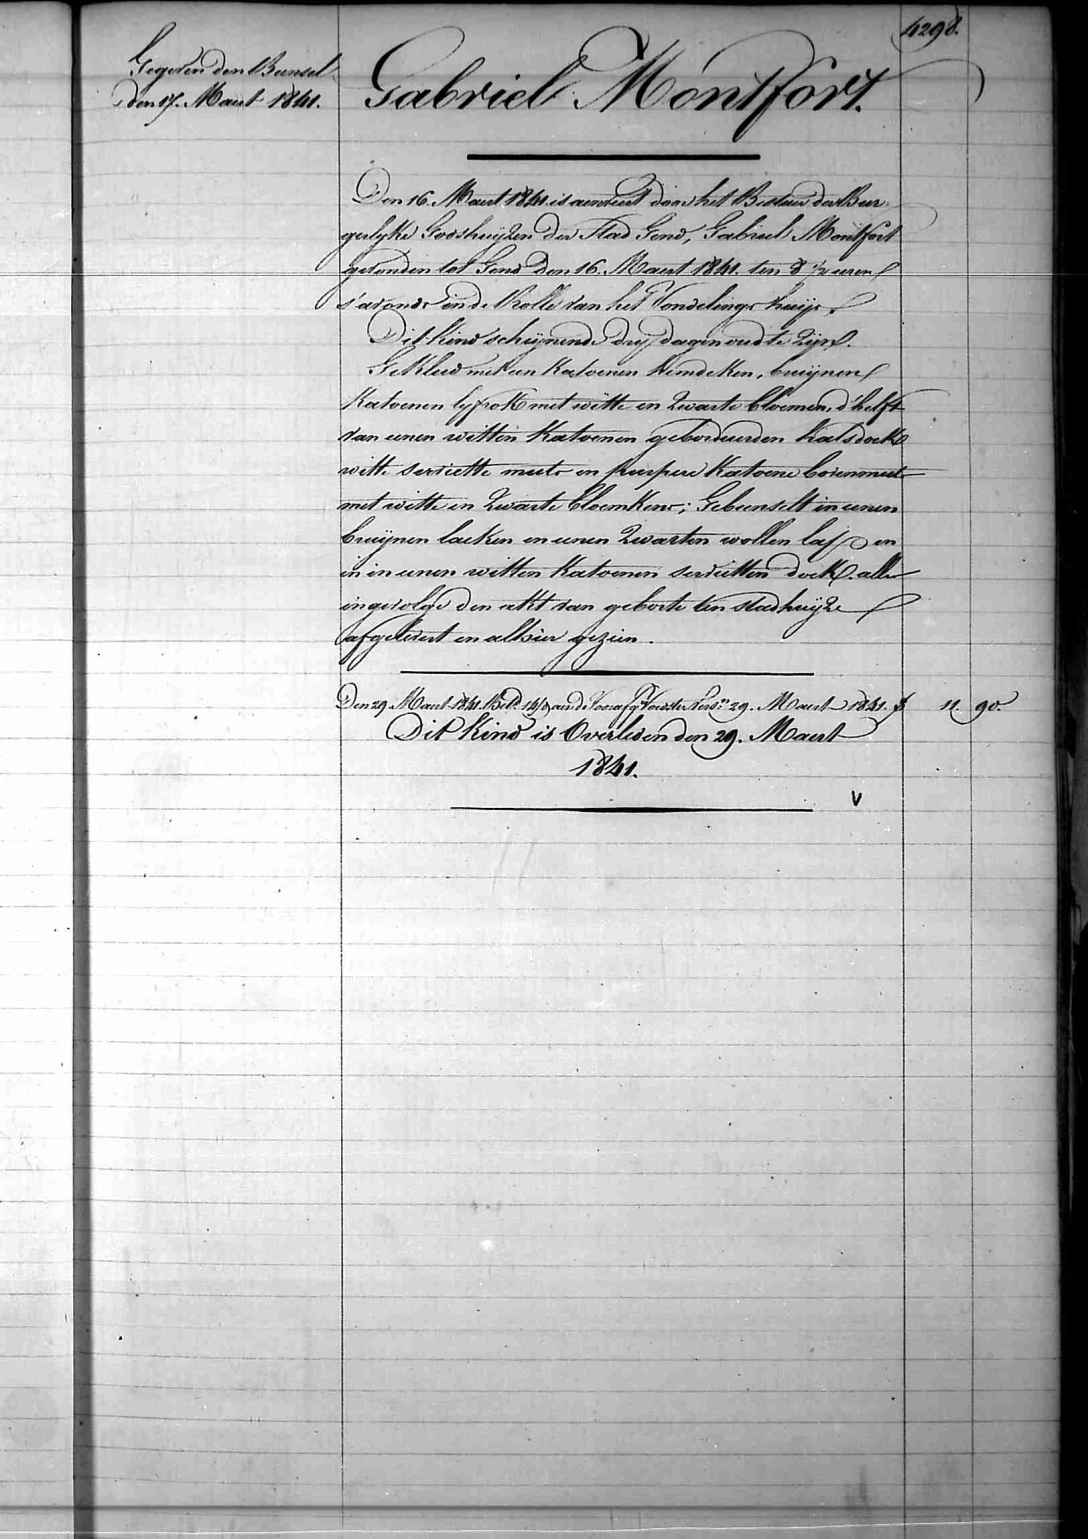 4298.
Gegeven den Bunsel
den 17. Maert 1841.
Gabriel Montfort.
Den 16. Maert 1841. is aenveert door het Bestuer der Bur-
gerlyke Godshuijzen der Stad Gend, Gabriel Montfort
gevonden tot Gend den 16. Maert 1841. ten 8 ½ uren
s'avonds in de Rolle van het Vondelings huijs.
Dit kind schynende dry dagen oud te zijn.
Gekleed met een Katoenen hemdeken, bruijnen
Katoenen lyfrok met witte en zwarte bloemen, d'helft
van eenen witten Katoenen geborduerden halsdoek
witte serviette muts en purpere Katoene bovenmuts
met witte en zwarte bloemkens; Gebunselt in eenen
bruijnen laeken en eenen zwarten wollen lap en
in eenen witten Katoenen servietten doek. alles
ingevolge den akt van geborte ten stadhuijze
afgelevert en alhier gezien.
Den 29 Maert 1841. Bet. aen de Voedster 29. Maert 1841. f 11 90.
Dit kind is Overleden den 29. Maert
1841.
V